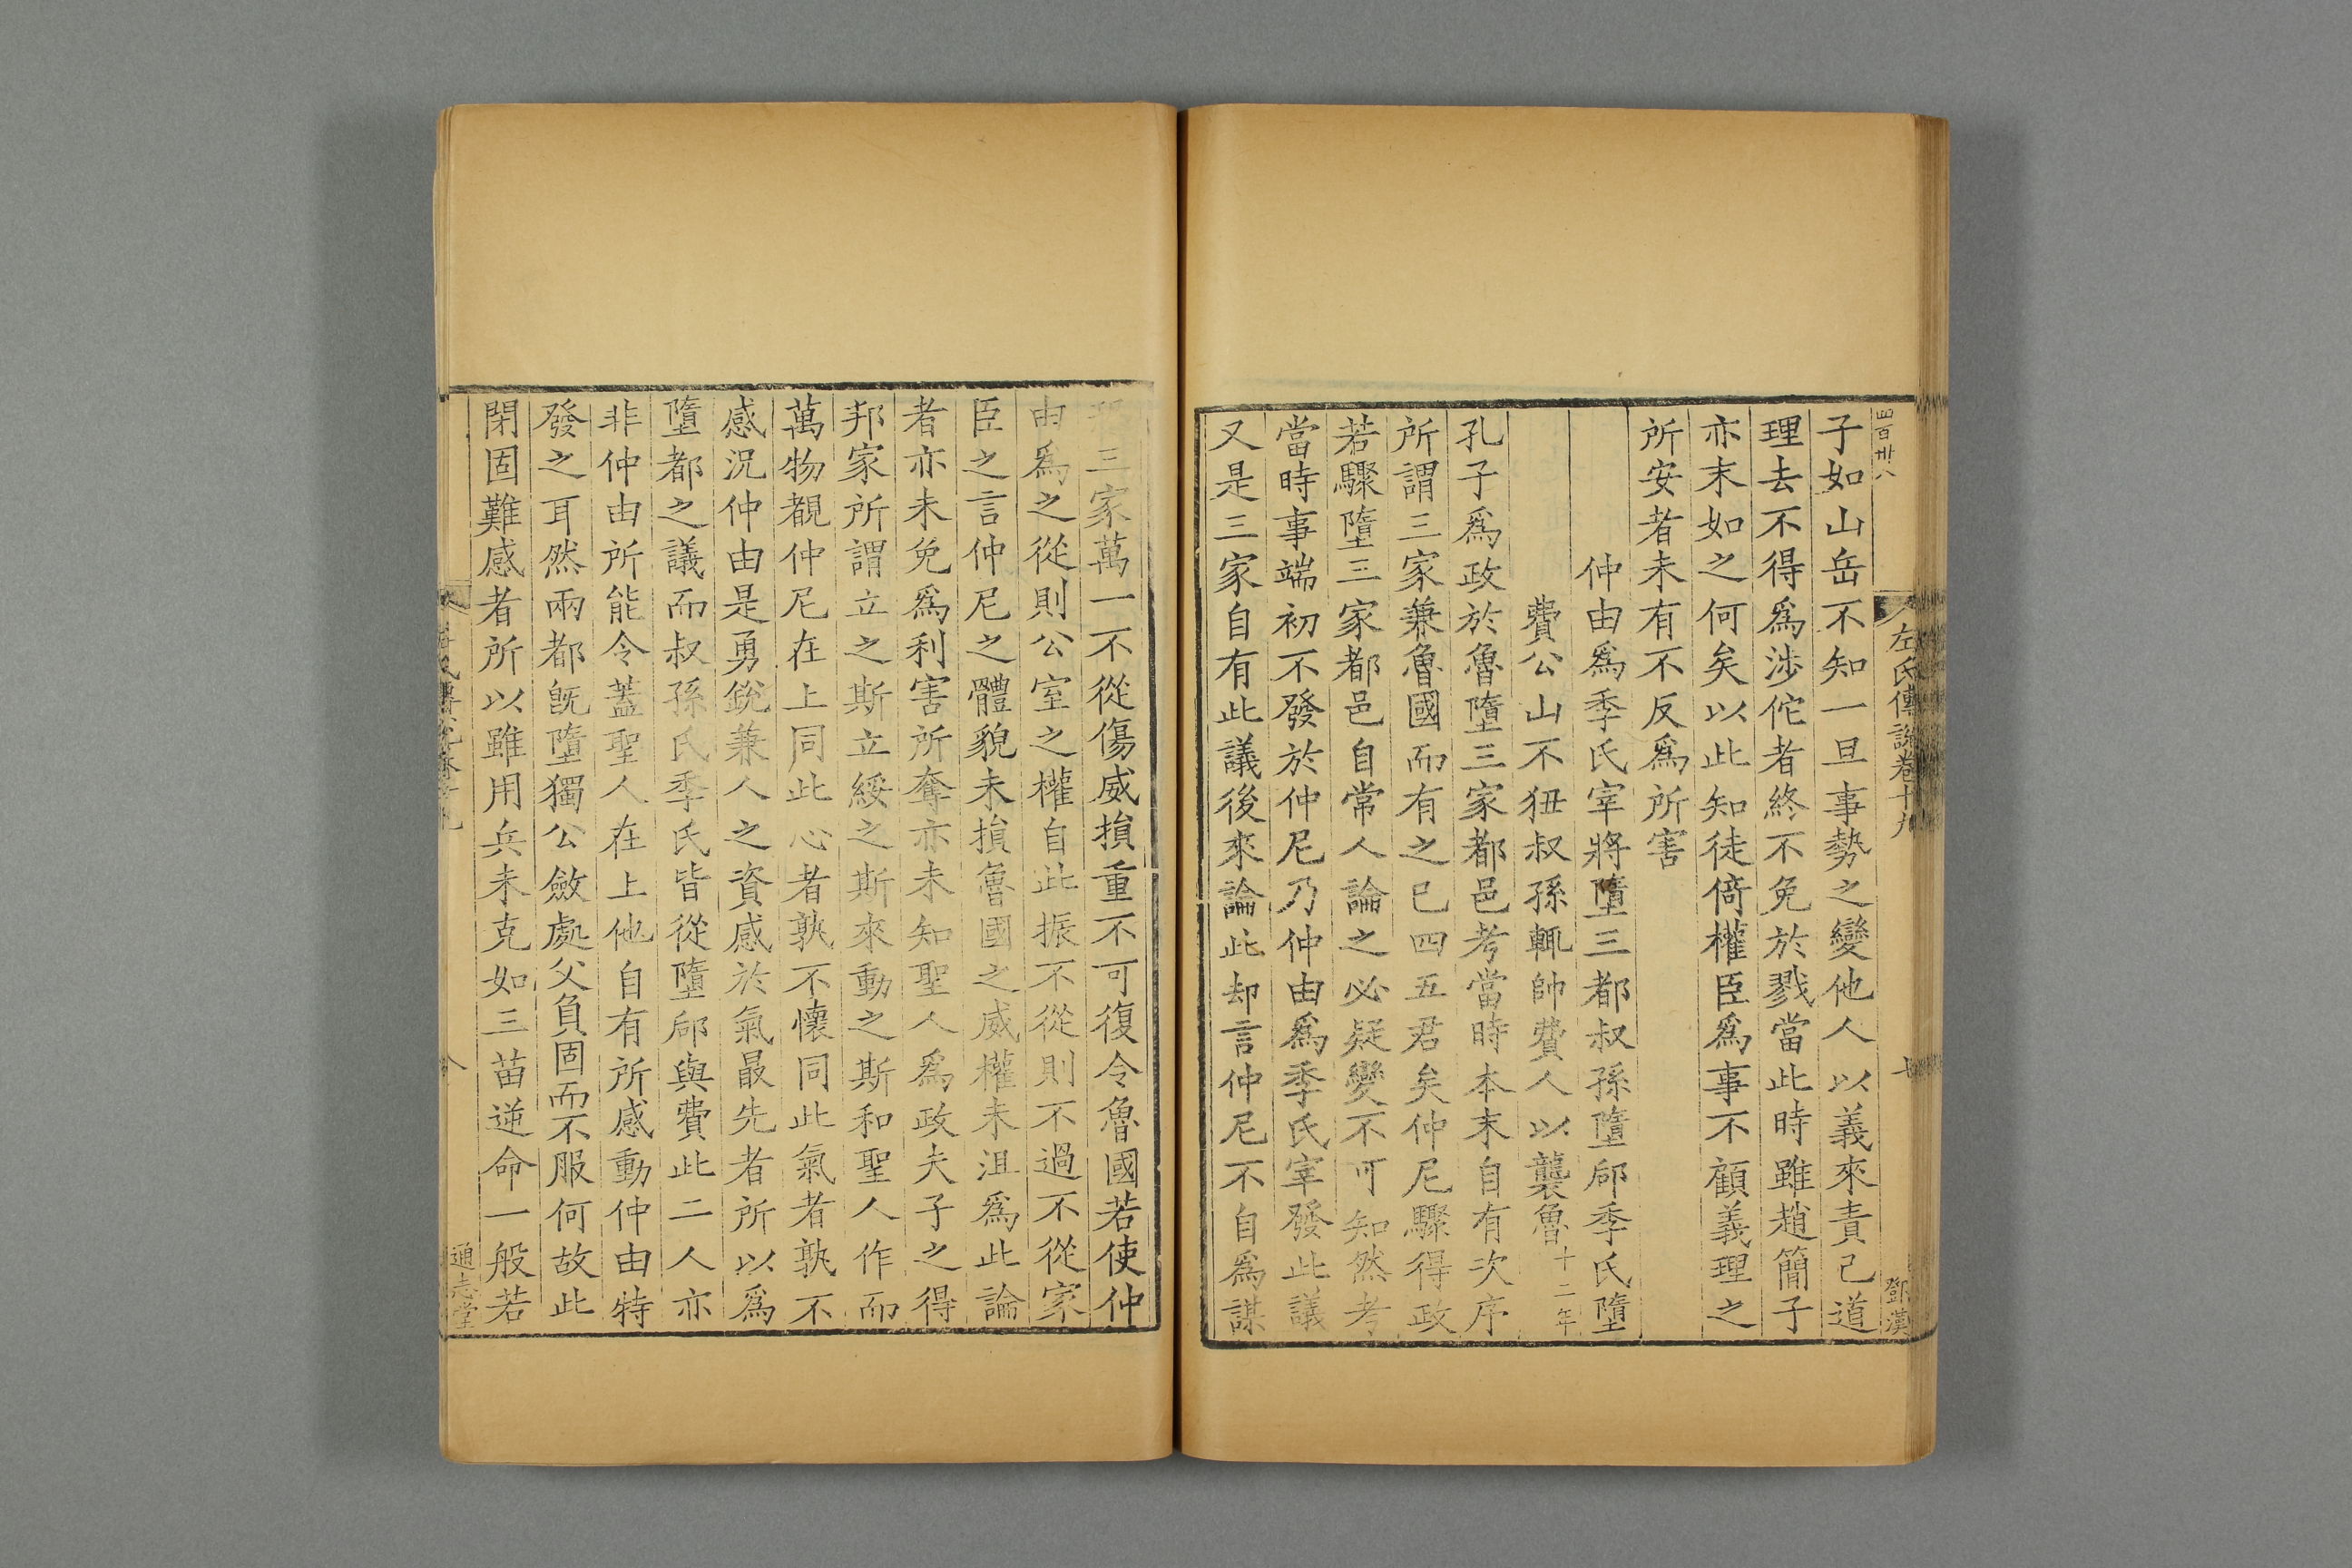 四百卅八
左氏傳説卷十九
七
鄧漢
子如山岳不知一旦事勢之變他人以義來責己道
理去不得爲涉佗者終不免於戮當此時雖趙簡子
亦末如之何矣以此知徒倚權臣爲事不顧義理之
所安者未有不反爲所害
仲由爲季氏宰將墮三都叔孫墮郈季氏墮
費公山不狃叔孫輒帥費人以襲魯十二年
孔子爲政於魯墮三家都邑考當時本末自有次序
所謂三家兼魯國而有之已四五君矣仲尼驟得政
若驟墮三家都邑自常人論之必疑變不可知然考
當時事端初不發於仲尼乃仲由爲季氏宰發此議
又是三家自有此議後來論此却言仲尼不自爲謀
三家萬一不從傷威損重不可復令魯國若使仲
由爲之從則公室之權自此振不從則不過不從家
臣之言仲尼之體貌未損魯國之威權未沮爲此論
者亦未免爲利害所奪亦未知聖人爲政夫子之得
邦家所謂立之斯立綏之斯來動之斯和聖人作而
萬物覩仲尼在上同此心者孰不懷同此氣者孰不
感況仲由是勇銳兼人之資感於氣最先者所以爲
墮都之議而叔孫氏季氏皆從墮郈與費此二人亦
非仲由所能令蓋聖人在上他自有所感動仲由特
發之耳然兩都旣墮獨公斂處父負固而不服何故此
閉固難感者所以雖用兵未克如三苗逆命一般若
八
通志堂